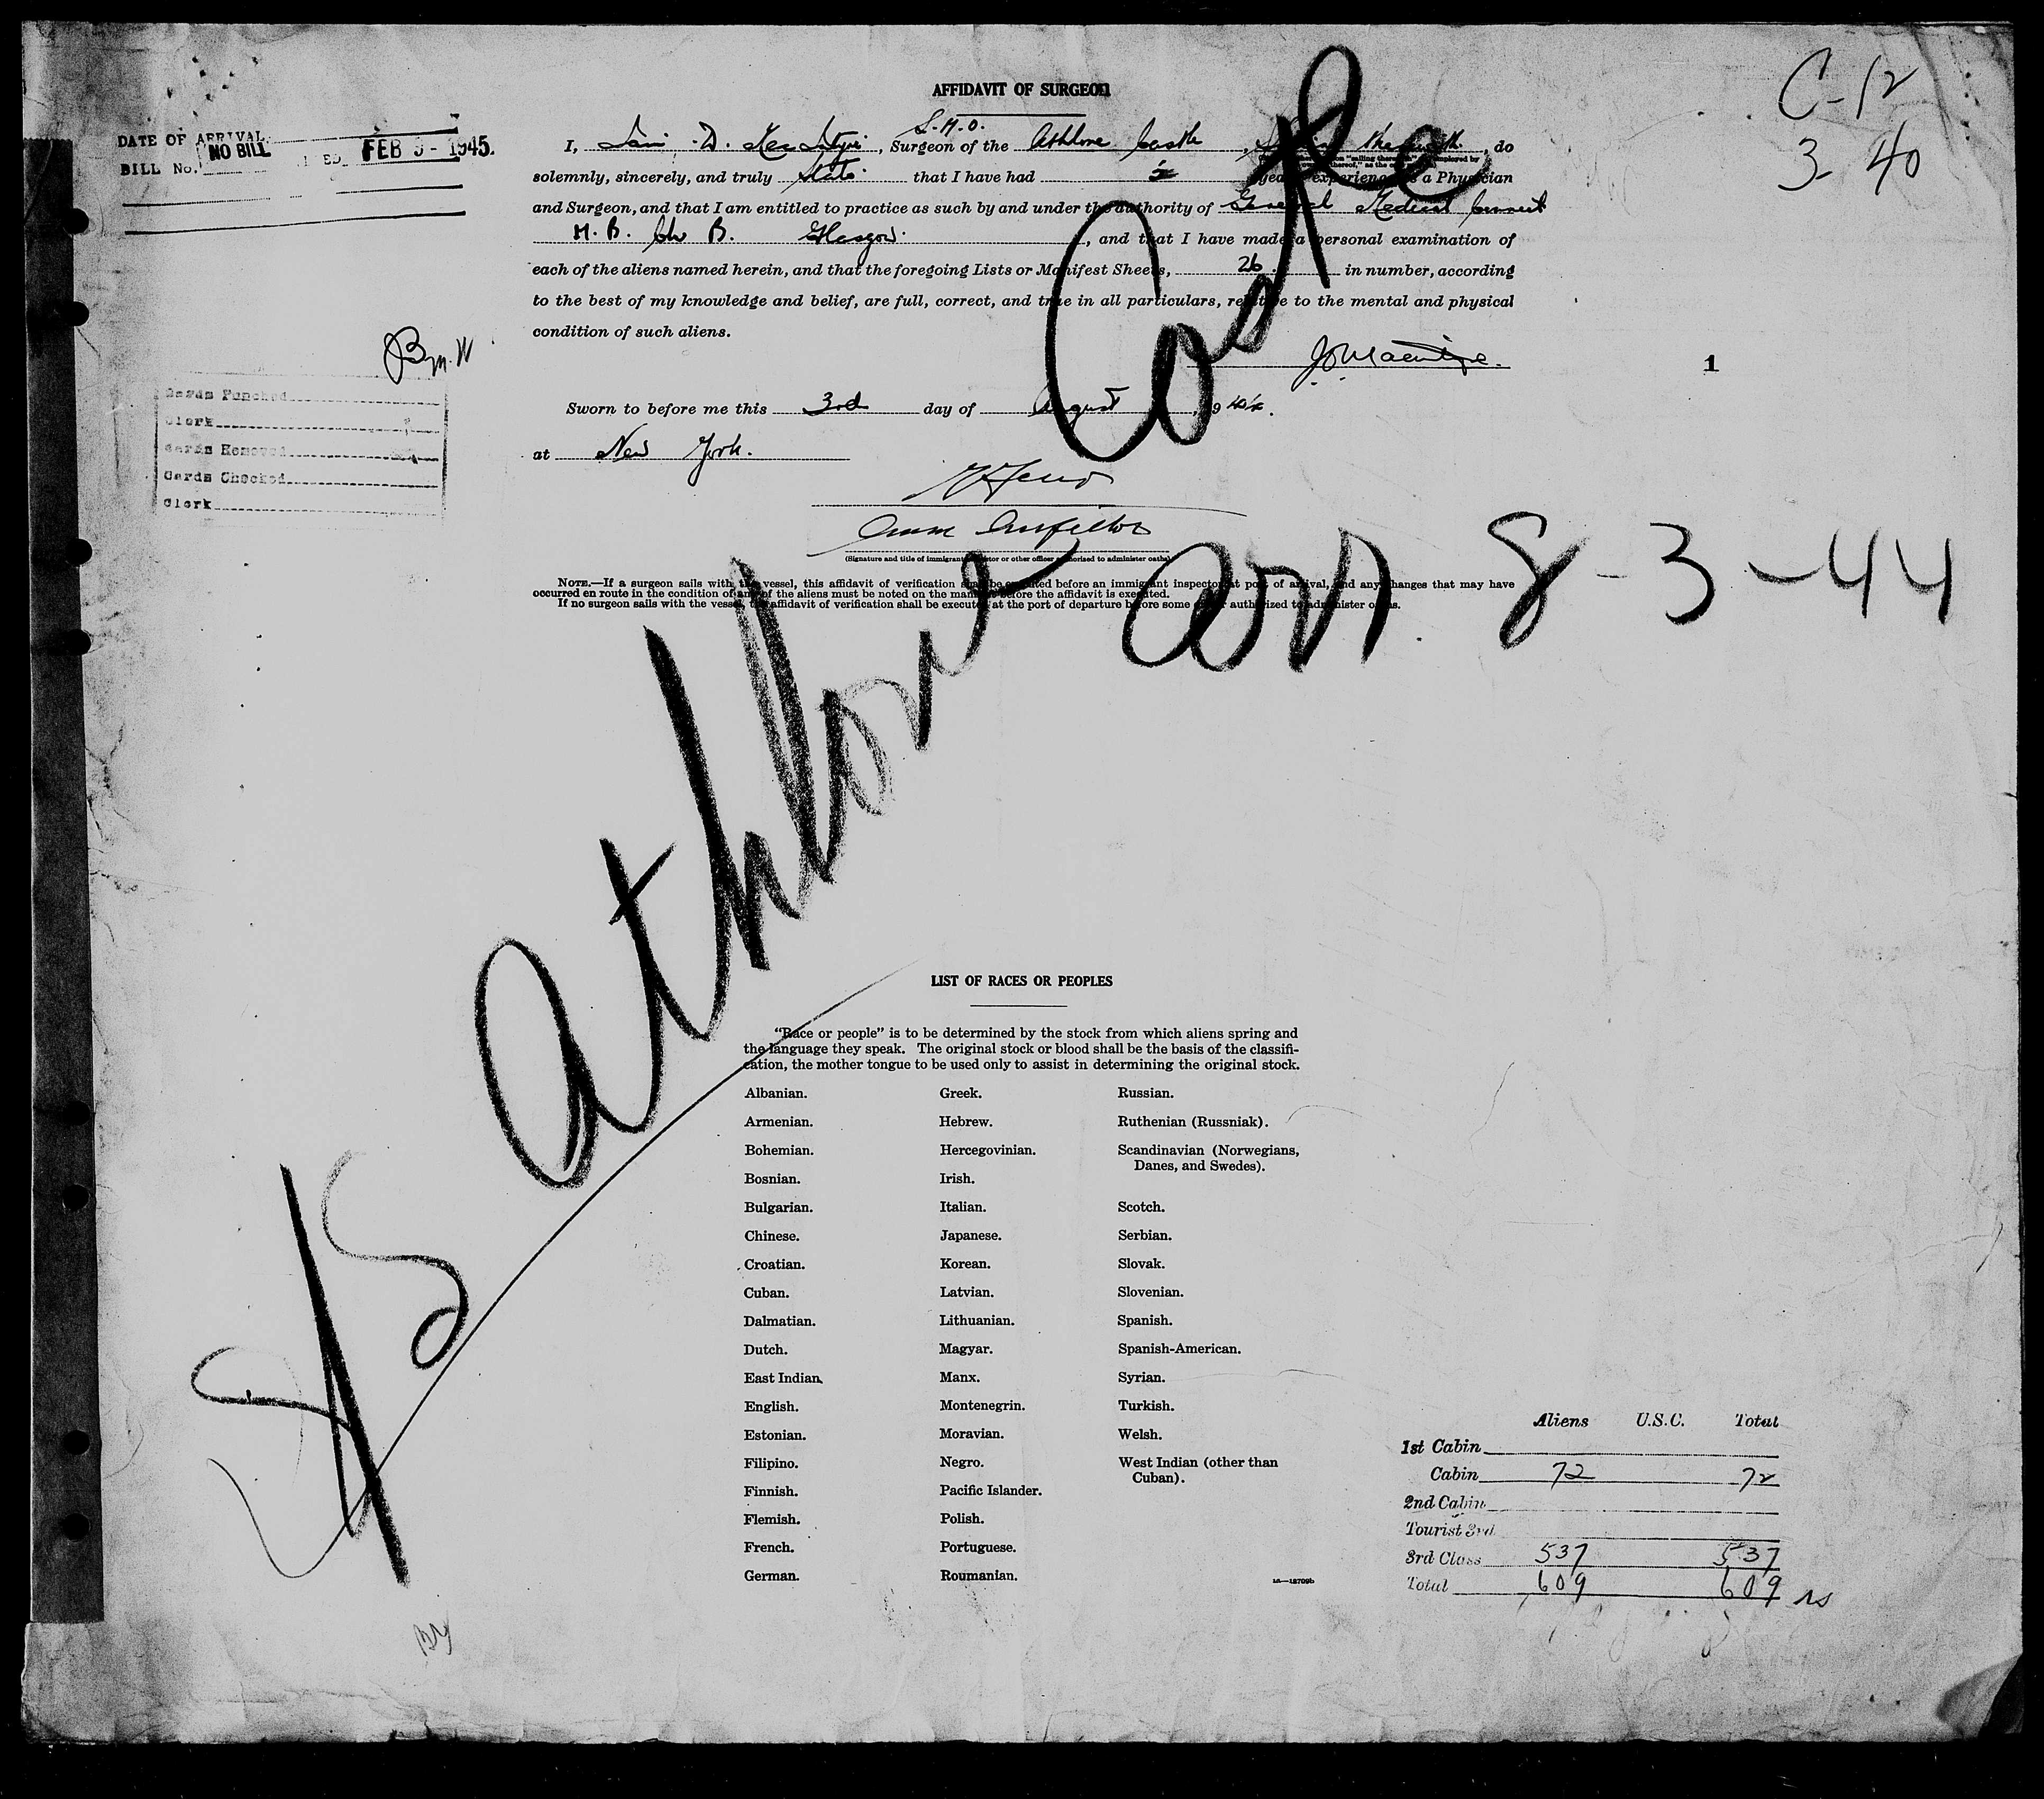 C-12
3-40
DATE OF ARRIVAL
BILL No. NO BILL FEB 5 - 1945.
AFFIDAVIT OF SURGEON
S.M.O.
I, Iain D. MacIntyre, Surgeon of the Athlone Castle, therewith, do
solemnly, sincerely, and truly state that I have had experience as a Physician
and Surgeon, and that I am entitled to practice as such by and under the authority of General Medical Council
M.B. Ch B. Glasgow., and that I have made a personal examination of
each of the aliens named herein, and that the foregoing Lists or Manifest Sheets, 26 in number, according
to the best of my knowledge and belief, are full, correct, and true in all particulars, relative to the mental and physical
condition of such aliens.
1
Cards Punched
Clerk
Cards Removed
Cards Checked
Clerk
Sworn to before me this 3rd day of August, 1944.
at New York.
(Signature and title of immigrant inspector or other officer authorized to administer oaths)
NOTE.—If a surgeon sails with the vessel, this affidavit of verification shall be executed before an immigrant inspector at port of arrival, and any changes that may have
occurred en route in the condition of any of the aliens must be noted on the manifest before the affidavit is executed.
If no surgeon sails with the vessel, the affidavit of verification shall be executed at the port of departure before some officer authorized to administer oaths.
S/S Athlone Castle
arr. 8-3-44
LIST OF RACES OR PEOPLES
"Race or people" is to be determined by the stock from which aliens spring and
the language they speak. The original stock or blood shall be the basis of the classifi-
cation, the mother tongue to be used only to assist in determining the original stock.
Albanian.
Armenian.
Bohemian.
Bosnian.
Bulgarian.
Chinese.
Croatian.
Cuban.
Dalmatian.
Dutch.
East Indian.
English.
Estonian.
Filipino.
Finnish.
Flemish.
French.
German.
Greek.
Hebrew.
Hercegovinian.
Irish.
Italian.
Japanese.
Korean.
Latvian.
Lithuanian.
Magyar.
Manx.
Montenegrin.
Moravian.
Negro.
Pacific Islander.
Polish.
Portuguese.
Roumanian.
Russian.
Ruthenian (Russniak).
Scandinavian (Norwegians,
Danes, and Swedes).
Scotch.
Serbian.
Slovak.
Slovenian.
Spanish.
Spanish-American.
Syrian.
Turkish.
Welsh.
West Indian (other than
Cuban).
16—18709b
Aliens U.S.C. Total
1st Cabin
Cabin 72 72
2nd Cabin
Tourist 3rd
3rd Class 537 537
Total 609 609